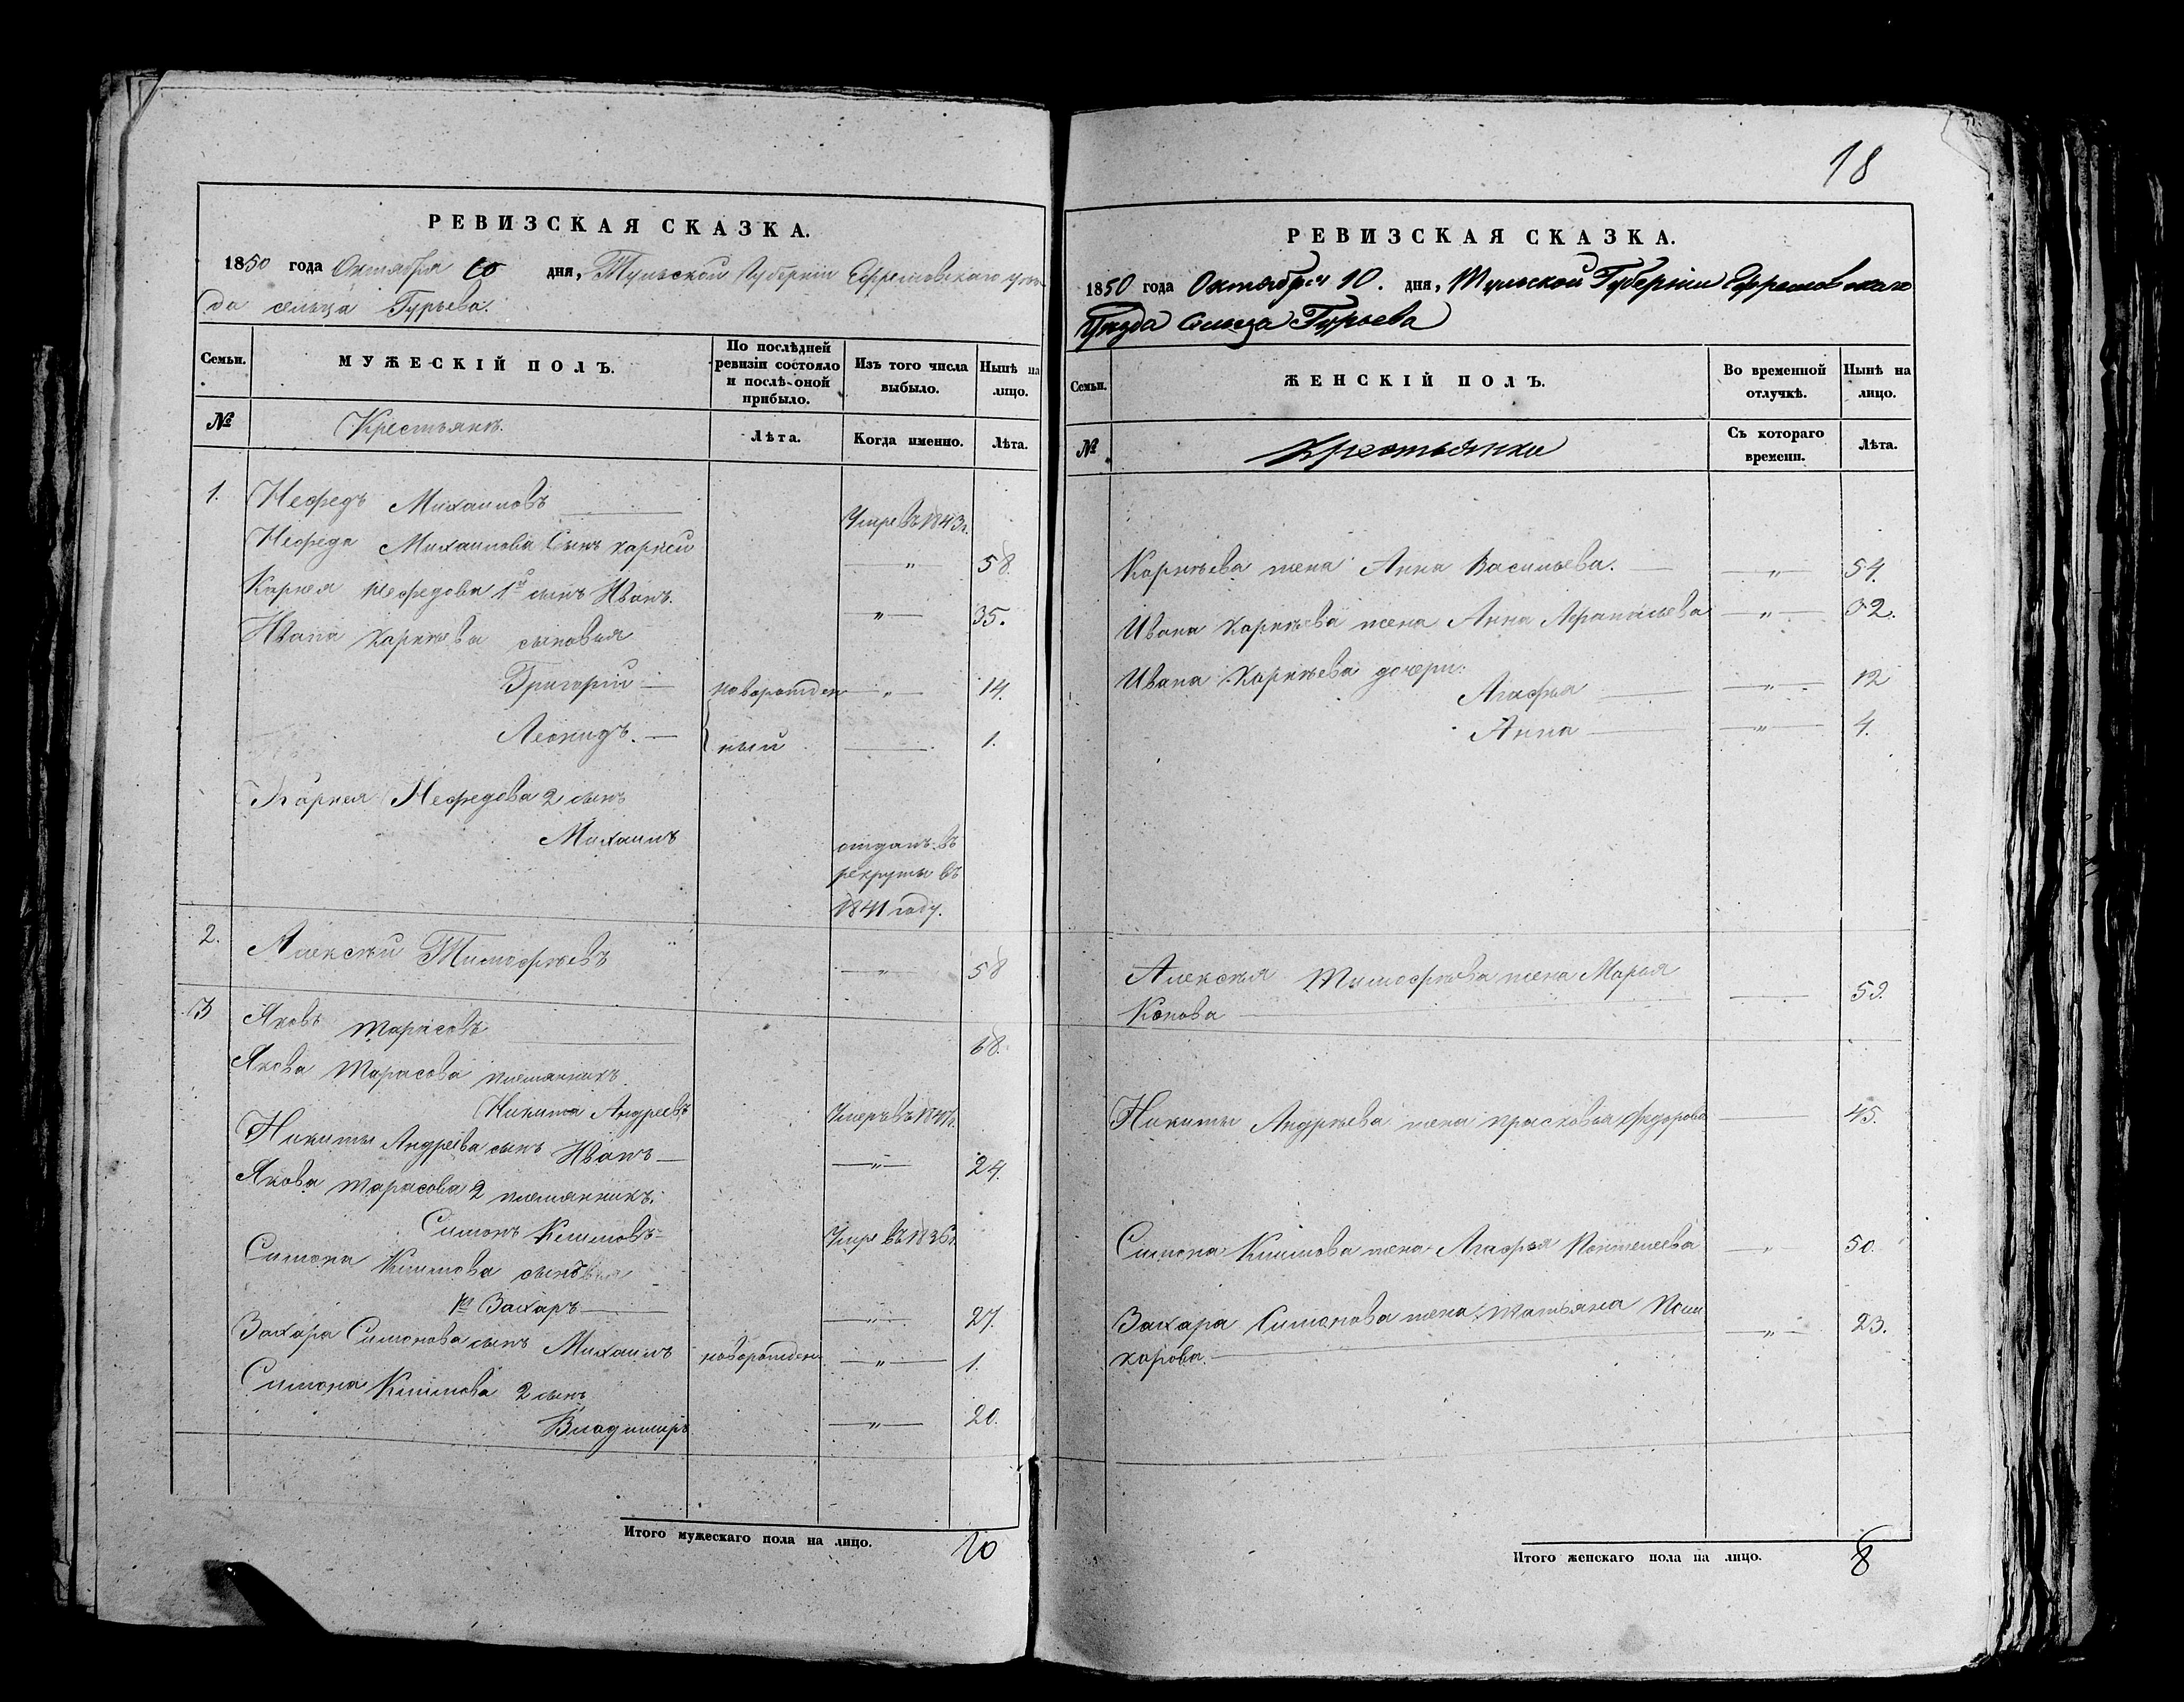 РЕВИЗСКАЯ СКАЗКА.
1850 года Октября 10 дня, Тульской Губерніи Ефремовскаго уѣз
да сельца Гурьева.
Семьи.
МУЖЕСКІЙ ПОЛЪ.
По послѣдней
ревизіи состояло
и послѣ оной
прибыло.
Изъ того числа
выбыло.
Нынѣ на
лицо.
№
Крестьянъ.
Лѣта.
Когда именно.
Лѣта.
1. Нефедъ Михаиловъ Умре въ 1843 г.
Нефеда Михаилова Сынъ Карней " 58.
Карнея Нефедова 1й сынъ Иванъ. " 35.
Ивана Карнѣева сыновья
Григорій новорожден " 14.
Леонидъ. ный 1.
Карнея Нефедова 2 сынъ
Михаилъ отданъ въ
рекруты въ
1841 году.
2. Алексѣй Тимофѣевъ " 58
3 Яковъ Тарасовъ 68.
Якова Тарасова племянникъ
Никита Андреевъ
Никиты Андреева сынъ Иванъ " 24.
Якова Тарасова 2 племянникъ.
Симонъ Климовъ Умре въ 1836 г.
Симона Климова сыновья
1й Захаръ " 27.
Захара Симонова сынъ Михаилъ новорожден " 1.
Симона Климова 2 сынъ
Владимиръ " 20.
Итого мужескаго пола на лицо. 10
18
РЕВИЗСКАЯ СКАЗКА.
1850 года Октября 10. дня, Тульской Губерніи Ефремовскаго
Уѣзда Сельца Гурьева
Семьи.
ЖЕНСКІЙ ПОЛЪ.
Во временной
отлучкѣ.
Нынѣ на
лицо.
№
Крестьянки
Съ котораго
времени.
Лѣта.
Карнѣева жена Анна Васильева. " 54.
Ивана Карнѣева жена Анна "
Ивана Карнѣева дочери:
Агафья " 12
Анна " 4.
Алексѣя Тимофѣева жена Марья
Конова 59.
Никиты Андрѣева жена Прасковья Федорова 45.
Симона Климова жена Агафья Пантелеева " 50.
Захара Симонова жена Татьяна Поли
карпова. " 23.
Итого женскаго пола на лицо. 8